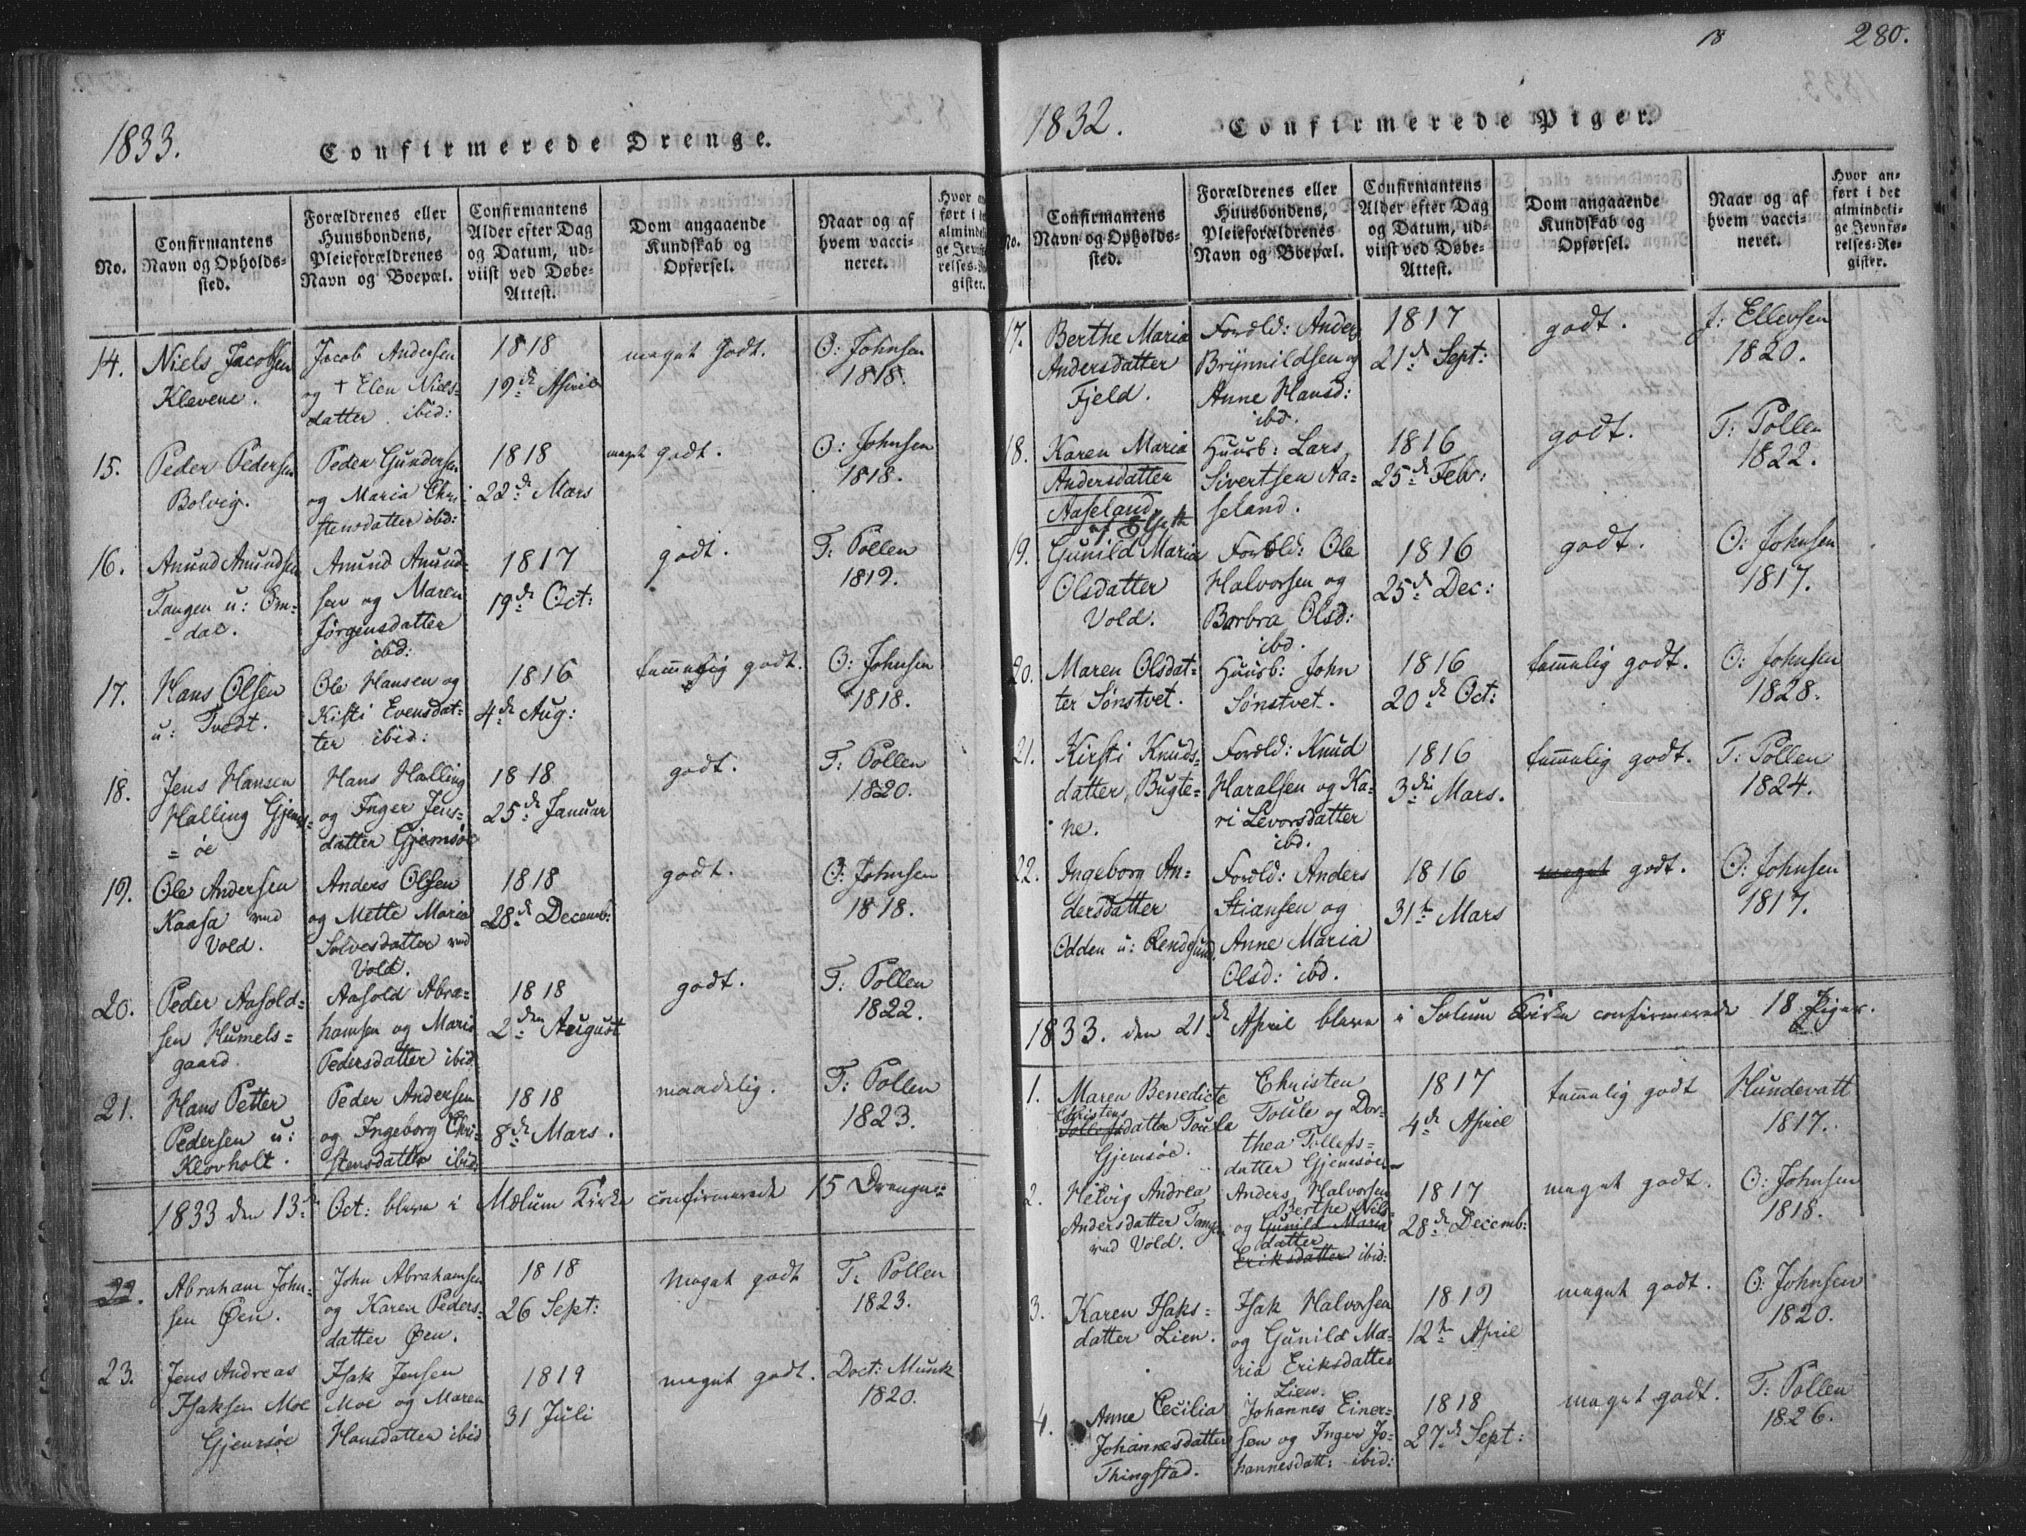 1833.
Confirmerede Drenge.
No.
Confirmantens
Navn og Opholds-
sted.
Forældrenes eller
Huusbondens,
Pleieforældrenes
Navn og Boepæl.
Confirmantens
Alder efter Dag
og Datum, ud-
viist ved Døbe-
Attest.
Dom angaaende
Kundskab og
Opførsel.
Naar og af
hvem vacci-
neret.
14.
Niels Jacobsen
Klevene.
Jacob Andersen
og + Elen Niels-
datter ibid:
1818
19de April
meget Godt.
O: Johnsen
1818.
15.
Peder Pedersen
Bolvig.
Peder Gundersen
og Maria Chri-
stensdatter ibd:
1818
22de Mars
meget godt.
O: Johnsen
1818.
16.
Amund Amundsen
Tangen u: Om-
-dal.
Amund Amund-
sen og Maren
Jørgensdatter
ibd:
1817
19de Oct:
godt.
T: Pollen
1819.
17.
Hans Olsen
u: Tvedt.
Ole Hansen og
Kisti Evensdat-
ter ibid:
1816
4de Aug:
temmelig godt.
O: Johnsen
1818.
18.
Jens Hansen
Halling Gjems-
= øe
Hans Halling
og Inger Jens-
datter Gjemsøe
1818
25de Januar
godt.
T: Pollen
1820.
19.
Ole Andersen
Kaasa ved
Vold.
Anders Olsen
og Mette Maria
Solvesdatter ved
Vold.
1818
28de Decemb:
godt.
O: Johnsen
1818.
20.
Peder Aasold-
sen Humels-
gaard.
Aasold Abra-
hamsen og Maria
Pedersdatter ibid
1818
2den August
godt.
T: Pollen
1822.
21.
Hans Petter
Pedersen u:
Klovholt.
Peder Andersen
og Ingeborg Chri-
stensdatter ibid:
1818
8de Mars.
maadelig.
T: Pollen
1823.
1833 den 13de Oct: bleve i Mælum Kirke confirmerede 15 Drenge:
22.
Abraham John-
sen Øen.
John Abrahamsen
og Karen Peders-
datter Øen.
1818
26 Sept:
Meget godt
T: Pollen
1823.
23.
Jens Andreas
Isaksen Moe
Gjemsøe
Isak Jensen
Moe og Maren
Hansdatter ibid
1819
31 Juli
meget godt.
Doct: Munk
1820.
18
280.
1832.
Confirmerede Piger.
No.
Confirmantens
Navn og Opholds-
sted.
Forældrenes eller
Huusbondens,
Pleieforældrenes
Navn og Boepæl.
Confirmantens
Alder efter Dag
og Datum, ud-
viist ved Døbe-
Attest.
Dom angaaende
Kundskab og
Opførsel.
Naar og af
hvem vacci-
neret.
Hvor an-
ført i det
almindeli-
ge Jevnfø-
relses-Re-
gister.
17.
Berthe Maria
Andersdatter
Fjeld.
Foræld: Anders
Brynnildsen og
Anne Hansd:
ibd.
1817
21de Sept:
godt.
J: Ellevsen
1820.
18.
Karen Maria
Andersdatter
Aaseland.
Huusb: Lars
Sivertsen Aa-
seland.
1816
25de Febr:
godt.
T: Pollen
1822.
19.
Gunild Maria
Olsdatter
Vold.
Foræld: Ole
Halvorsen og
Barbra Olsd:
ibd.
1816
25de Dec:
godt.
O: Johnsen
1817.
20.
Maren Olsdat-
ter Sønstvet.
Huusb: John
Sønstvet.
1816
20de Oct:
temmelig godt.
O: Johnsen
1828.
21.
Kirsti Knuds-
datter, Bugte-
ne.
Foræld: Knud
Haralsen og Ka-
ri Levorsdatter
ibd.
1816
3die Mars.
temmelig godt.
T: Pollen
1824.
22.
Ingeborg An-
dersdatter
Odden u: Rendesund.
Foræld: Anders
Stiansen og
Anne Maria
Olsd: ibd.
1816
31te Mars
meget godt.
O: Johnsen
1817.
1833. den 21de April bleve i Solum Kirke confirmerede 18 Piger.
1.
Maren Benedicte
Christens
datter Toule
Gjemsøe.
Christen
Toule og Dor-
thea Tollefs-
datter Gjemsøe
1817
4de April
temmelig godt
Hundevatt
1817.
2.
Helvig Andrea
Andersdatter Tangen
ved Vold.
Anders Halvorsen
Berthe Nils-
og Gunild Maria
datter
Eriksdatter ibid:
1817
28de Decemb:
meget godt.
O: Johnsen
1818.
3.
Karen Isaks-
datter Lien.
Isak Halvorsen
og Gunild Ma-
ria Eriksdatter
Lien.
1819
12te April
meget godt.
O: Johnsen
1820.
4.
Anne Cecilia
Johannesdatter
Thingstad.
Johannes Einer-
sen og Inger Jo-
hannesdatt: ibid:
1818
27de Sept:
meget godt.
T: Pollen
1826.